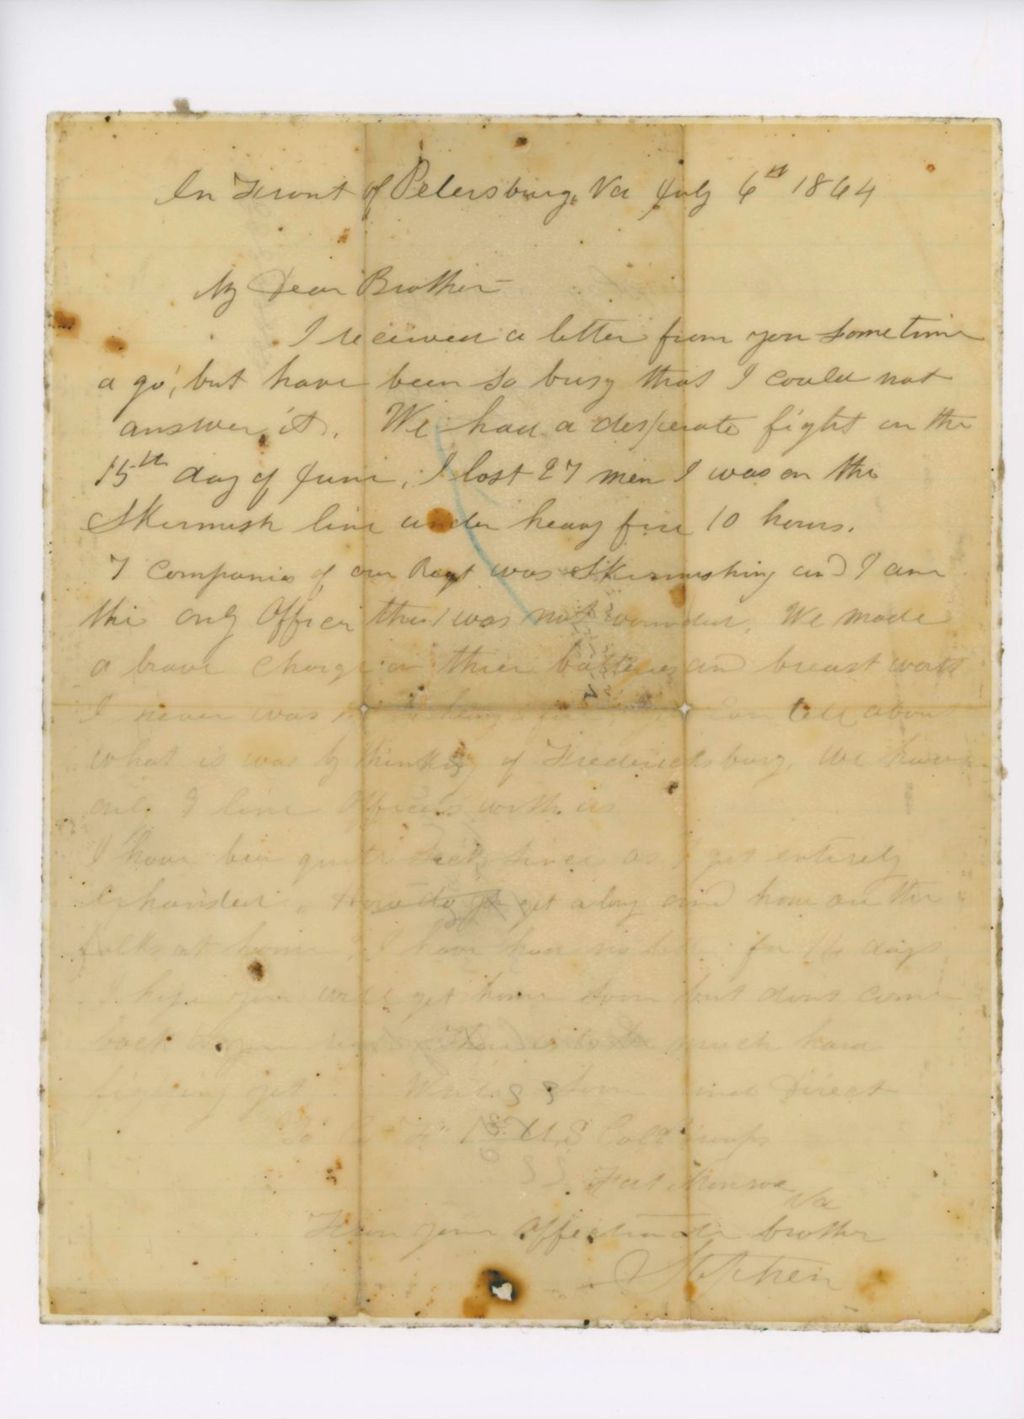 In Front of Petersburg, Va July 6th 1864
My Dear Brother
I received a letter from you sometime
a go, but have been so busy that I could not
answer it. We had a desperate fight on the
15th day of June, I lost 27 men I was on the
Skirmish line under heavy fire 10 hours.
7 Companies of our Regt was Skirmishing and I am
the only Officer that was not wounded. We made
a brave charge on thier batteries and breast works
I never was can tell about
what it was by thinking of Fredericksburg. We have
only line Officers with us
I have been quite sick since as I got entirely
get along and how are the
folks at home I have had no for days
I hope you will get home soon but dont come
back much hard
fighting yet. Write soon and Direct
To Co U.S. Cold Troops
Fort Monroe
Va
From your affectionate brother
Stephen